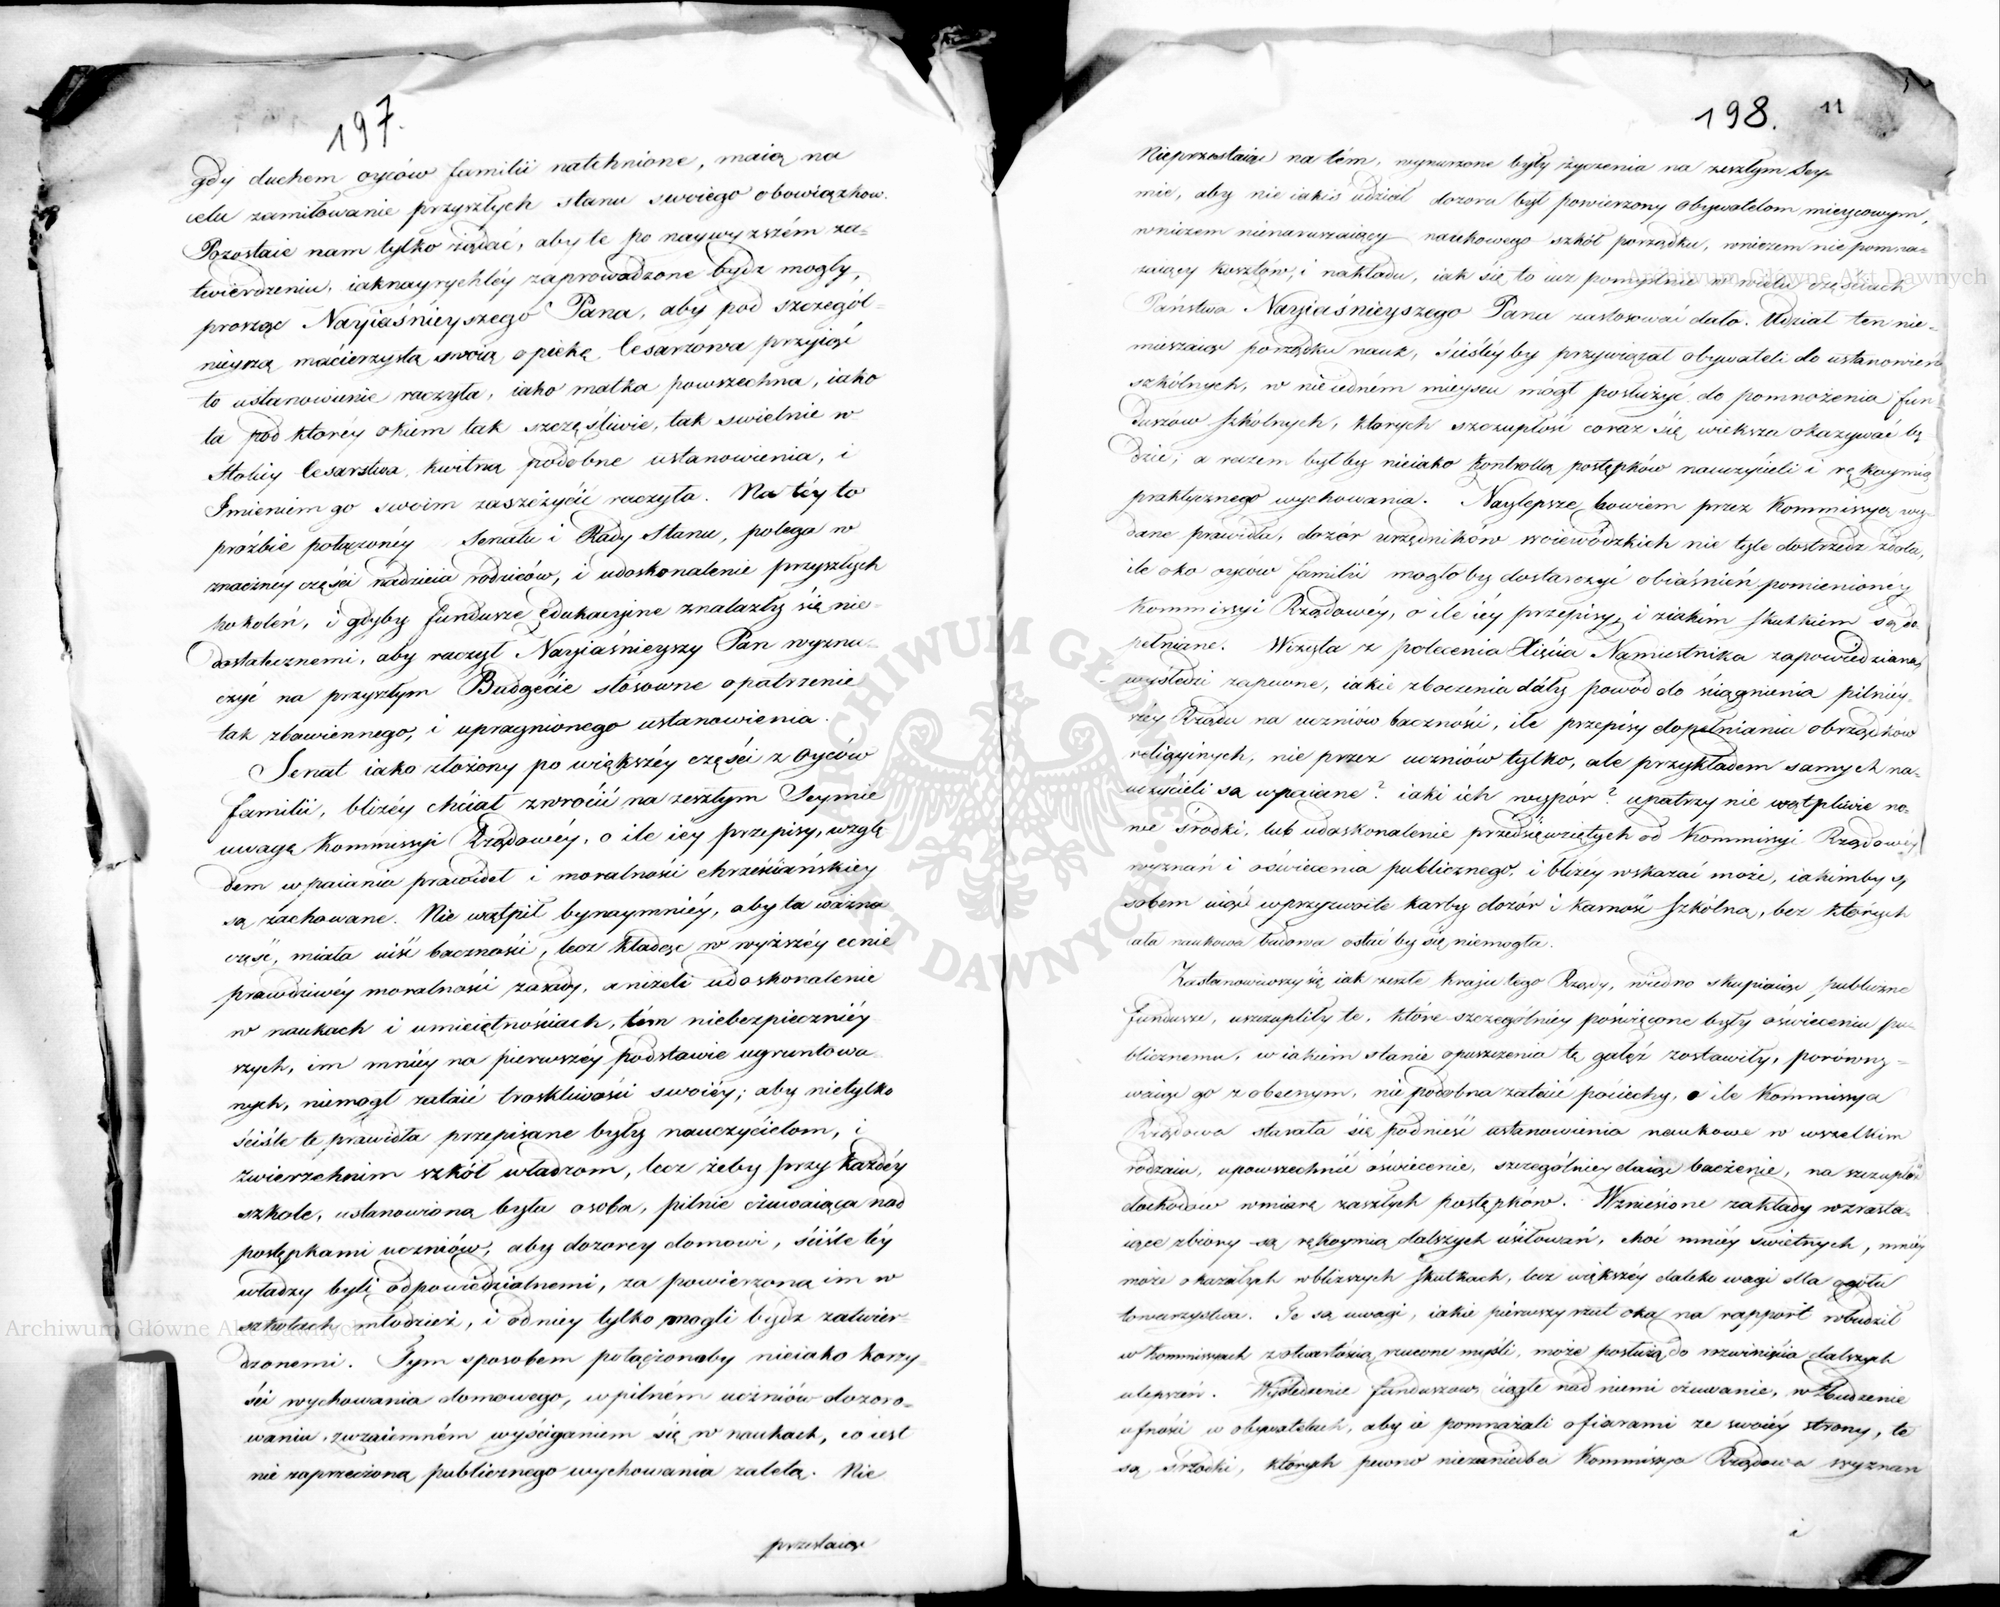 197.
gdy duchem oyców familii natchnione, maią na
celu zamiłowanie przyszłych stanu swoiego obowiązkow.
Pozostaie nam tylko żądać, aby te po naywyższém za-
twierdzeniu, iaknayrychléy zaprowadzone bydz mogły,
prosząc Nayiaśnieyszego Pana, aby pod szczegól-
nieyszą macierzystą swoią opiekę Cesarzowa przyiąć
to ustanowienie raczyła, iako matka powszechna, iako
ta pod którey okiem tak szczęśliwie, tak swietnie w
Stolicy Cesarstwa kwitną podobne ustanowienia, i
Imieniem go swoim zaszczycić raczyła. Na téy to
prożbie połączonéy Senatu i Rady Stanu, polega w
znaczney części nadzieia rodziców, i udoskonalenie przyszłych
pokoleń, i gdyby fundusze edukacyine znalazły się nie-
dostatecznemi, aby raczył Nayiaśnieyszy Pan wyzna-
czyć na przyszłym Budgecie stósowne opatrzenie
tak zbawiennego, i upragnionego ustanowienia.
Senat iako złożony po większéy części z oyców
familii, bliżéy chciał zwrócić na zeszłym Seymie
uwagę Kommissyi Rządowéy, o ile iey przepisy, wzglę
dem wpaiania prawideł i moralności chrześciańskiey
są zachowane. Nie wątpił bynaymniéy, aby ta ważna
część, miała uiść baczności, lecz kładąc w wyższéy cenie
prawdziwéy moralności zasady, aniżeli udoskonalenie
w naukach i umieiętnościach, tém niebezpiecznéy-
szych, im mniéy na pierwszéy podstawie ugruntowa-
nych, niemogł zataić troskliwości swoiéy; aby nietylko
ściśle te prawidła przepisane były nauczycielom, i
Zwierzchnim szkół władzom, lecz żeby przy każdéy
szkole, ustanowioną była osoba, pilnie czuwaiąca nad
postępkami uczniów, aby dozorcy domowi, ściśle téy
władzy byli odpowiedzialnemi, za powierzoną im w
szkołach młodzież, i od niey tylko mogli bydz zatwier-
dzonemi. Tym sposobem połączonoby nieiako korzy-
ści wychowania domowego, w pilném uczniów dozoro-
waniu, zwzaiemném wyściganiem się w naukach, co iest
nie zaprzeczoną publicznego wychowania zaletą. Nie
przestaiąc
198. 11
Nieprzestaiąc na tém, wynurzone były życzenia na zeszłym Sey-
mie, aby nie iakiś udział dozoru był powierzony obywatelom mieyscowym,
wniczem nienaruszaiący naukowego szkół porządku, wniczem nie pomna-
żaiący kosztów, i nakładu, iak się to iuż pomyślnie w wielu częściach
Państwa Nayiaśnieyszego Pana zastosować dało. Udział ten nie-
mieszaiąc porządku nauk, ściśléy by przywiązał obywateli do ustanowień
szkólnych, w nie iedném mieyscu mógł posłużyć do pomnożenia fun
duszów szkólnych, których szczupłość coraz się większa okazywać bę
dzie; a razem byłby nieiako kontrollą postępków nauczycieli i rękoymią
praktycznego wychowania. Naylepsze bowiem przez Kommissyą wy-
dane prawidła, dozór urzędników woiewódzkich nie tyle dostrzedz zdoła,
ile oko oyców familii mogłoby dostarczyć obiaśnień pomienionéy
Kommissyi Rządowéy, o ile iéy przepisy, i ziakim skutkiem są do
pełniane. Wizyta z polecenia Xięcia Namiestnika zapowiedziana,
wyśledzi zapewne, iakie zboczenia dały powód do ściągnienia pilniéy-
széy Rządu na uczniów baczności, ile przepisy dopełniania obrządków
religyinych, nie przez uczniów tylko, ale przykładem samych na-
uczycieli są wpaiane? iaki ich wypór? upatrzy nie wątpliwie no-
we środki, lub udoskonalenie przedsięwziętych od Kommissyi Rządowéy
wyznań i oświecenia publicznego, i bliżéy wskazać może, iakimby sp
sobem uiąć w przyzwoite karby dozór i karność szkólną, bez których
cała naukowa budowa ostać by się niemogła.
Zastanowiwszy się iak zeszłe kraju tego Rządy, wiedno skupiaiąc publiczne
fundusze, uszczupliły te, które szczególniéy poświęcone były oświeceniu pu-
blicznemu, w iakiem stanie opuszczenia tę gałęź zostawiły, porówny-
waiąc go z obecnym, nie podobna zataić pociechy, o ile Kommissya
Rządowa starała się podnieść ustanowienia naukowe w wszelkim
rodzaiu, upowszechnić oświecenie, szczególniey daiąc baczenie, na szczupłość
dochodów wmiarę zaszłych postępków. Wzniesione zakłady wzrasta-
iące zbiory są rękoymią dalszych usiłowań, choć mniéy świetnych, mniéy
może okazałych wbliższych skutkach, lecz większéy daleko wagi dla ogółu
towarzystwa. Te są uwagi, iakie pierwszy rzut oka na rapport wbudził
w Kommissyach z otwartością rzucone myśli, może posłużą do rozwinięcia dalszych
ulepszeń. Wyśledzenie funduszow, ciągłe nad niemi czuwanie, wzbudzenie
ufności w obywatelach, aby ie pomnażali ofiarami ze swoiéy strony, te
są środki, których pewno niezaniedba Kommissya Rządowa wyznań
i